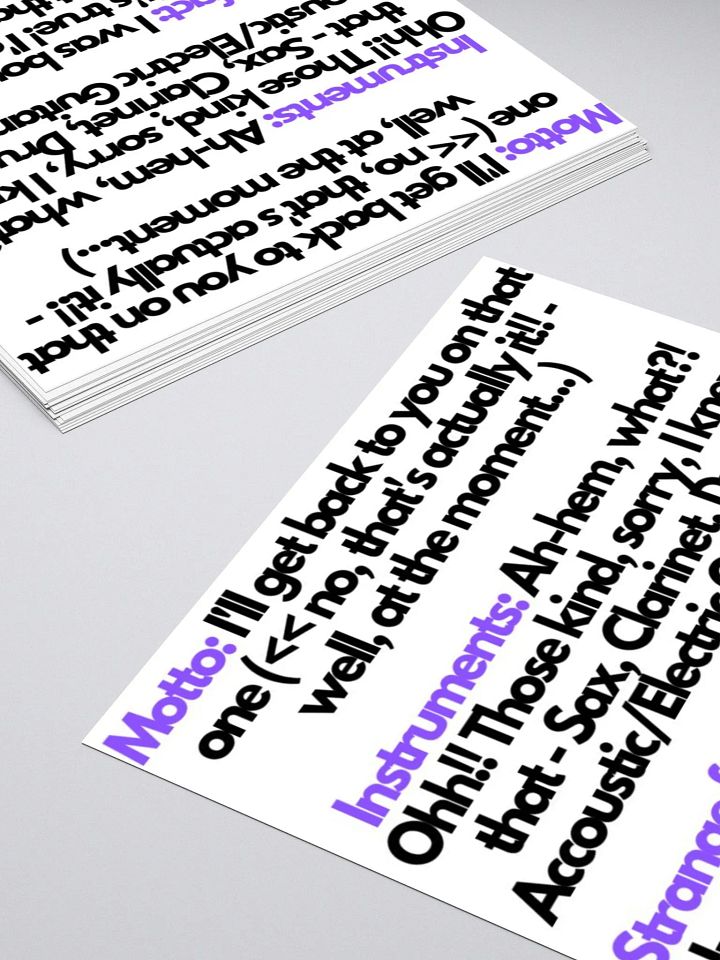 Motto: I'll get back to you on that
one (<< no, that's actually it!! -
well, at the moment...)
Instruments: Ah-hem, what
Ohh!! Those kind, sorry, I k
that - Sax, Clarinet, Dru
oustic/Electric Guitar
fact: I was bo
's true! I'
Motto: I'll get back to you on that
one (<< no, that's actually it!! -
well, at the moment...)
Instruments: Ah-hem, what?!
Ohh!! Those kind, sorry, I kno
that - Sax, Clarinet, D
Accoustic/Electric
Strange f